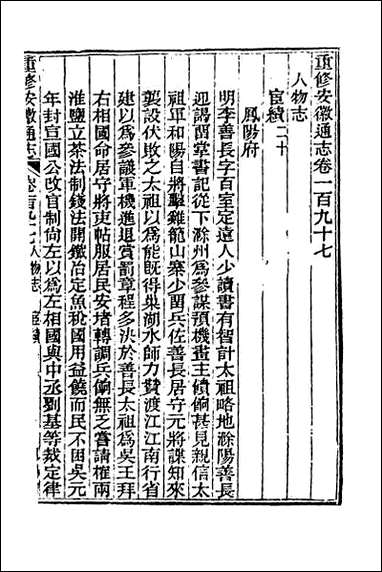 重修安徽通志卷一百九十七
人物志
宦績二十
鳳陽府
明李善長字百室定遠人少讀書有智計太祖略地滁陽善長
迎謁留掌書記從下滁州為參謀預機畫主饋餉甚見親信太
祖軍和陽自將擊雞籠山寨少留兵佐善長居守元將諜知來
襲設伏敗之太祖以為能既得巢湖水師力贊渡江江南行省
建以為參議軍機進退賞罰章程多決於善長太祖為吳王拜
右相國命居守將吏帖服居民安堵轉調兵餉無乏嘗請榷兩
淮鹽立茶法制錢法開鐵冶定魚稅國用益饒而民不困吳元
年封宣國公改官制尚左以為左相國與中丞劉基等裁定律
重修安徽通志 卷一百九十七 人物志 宦績